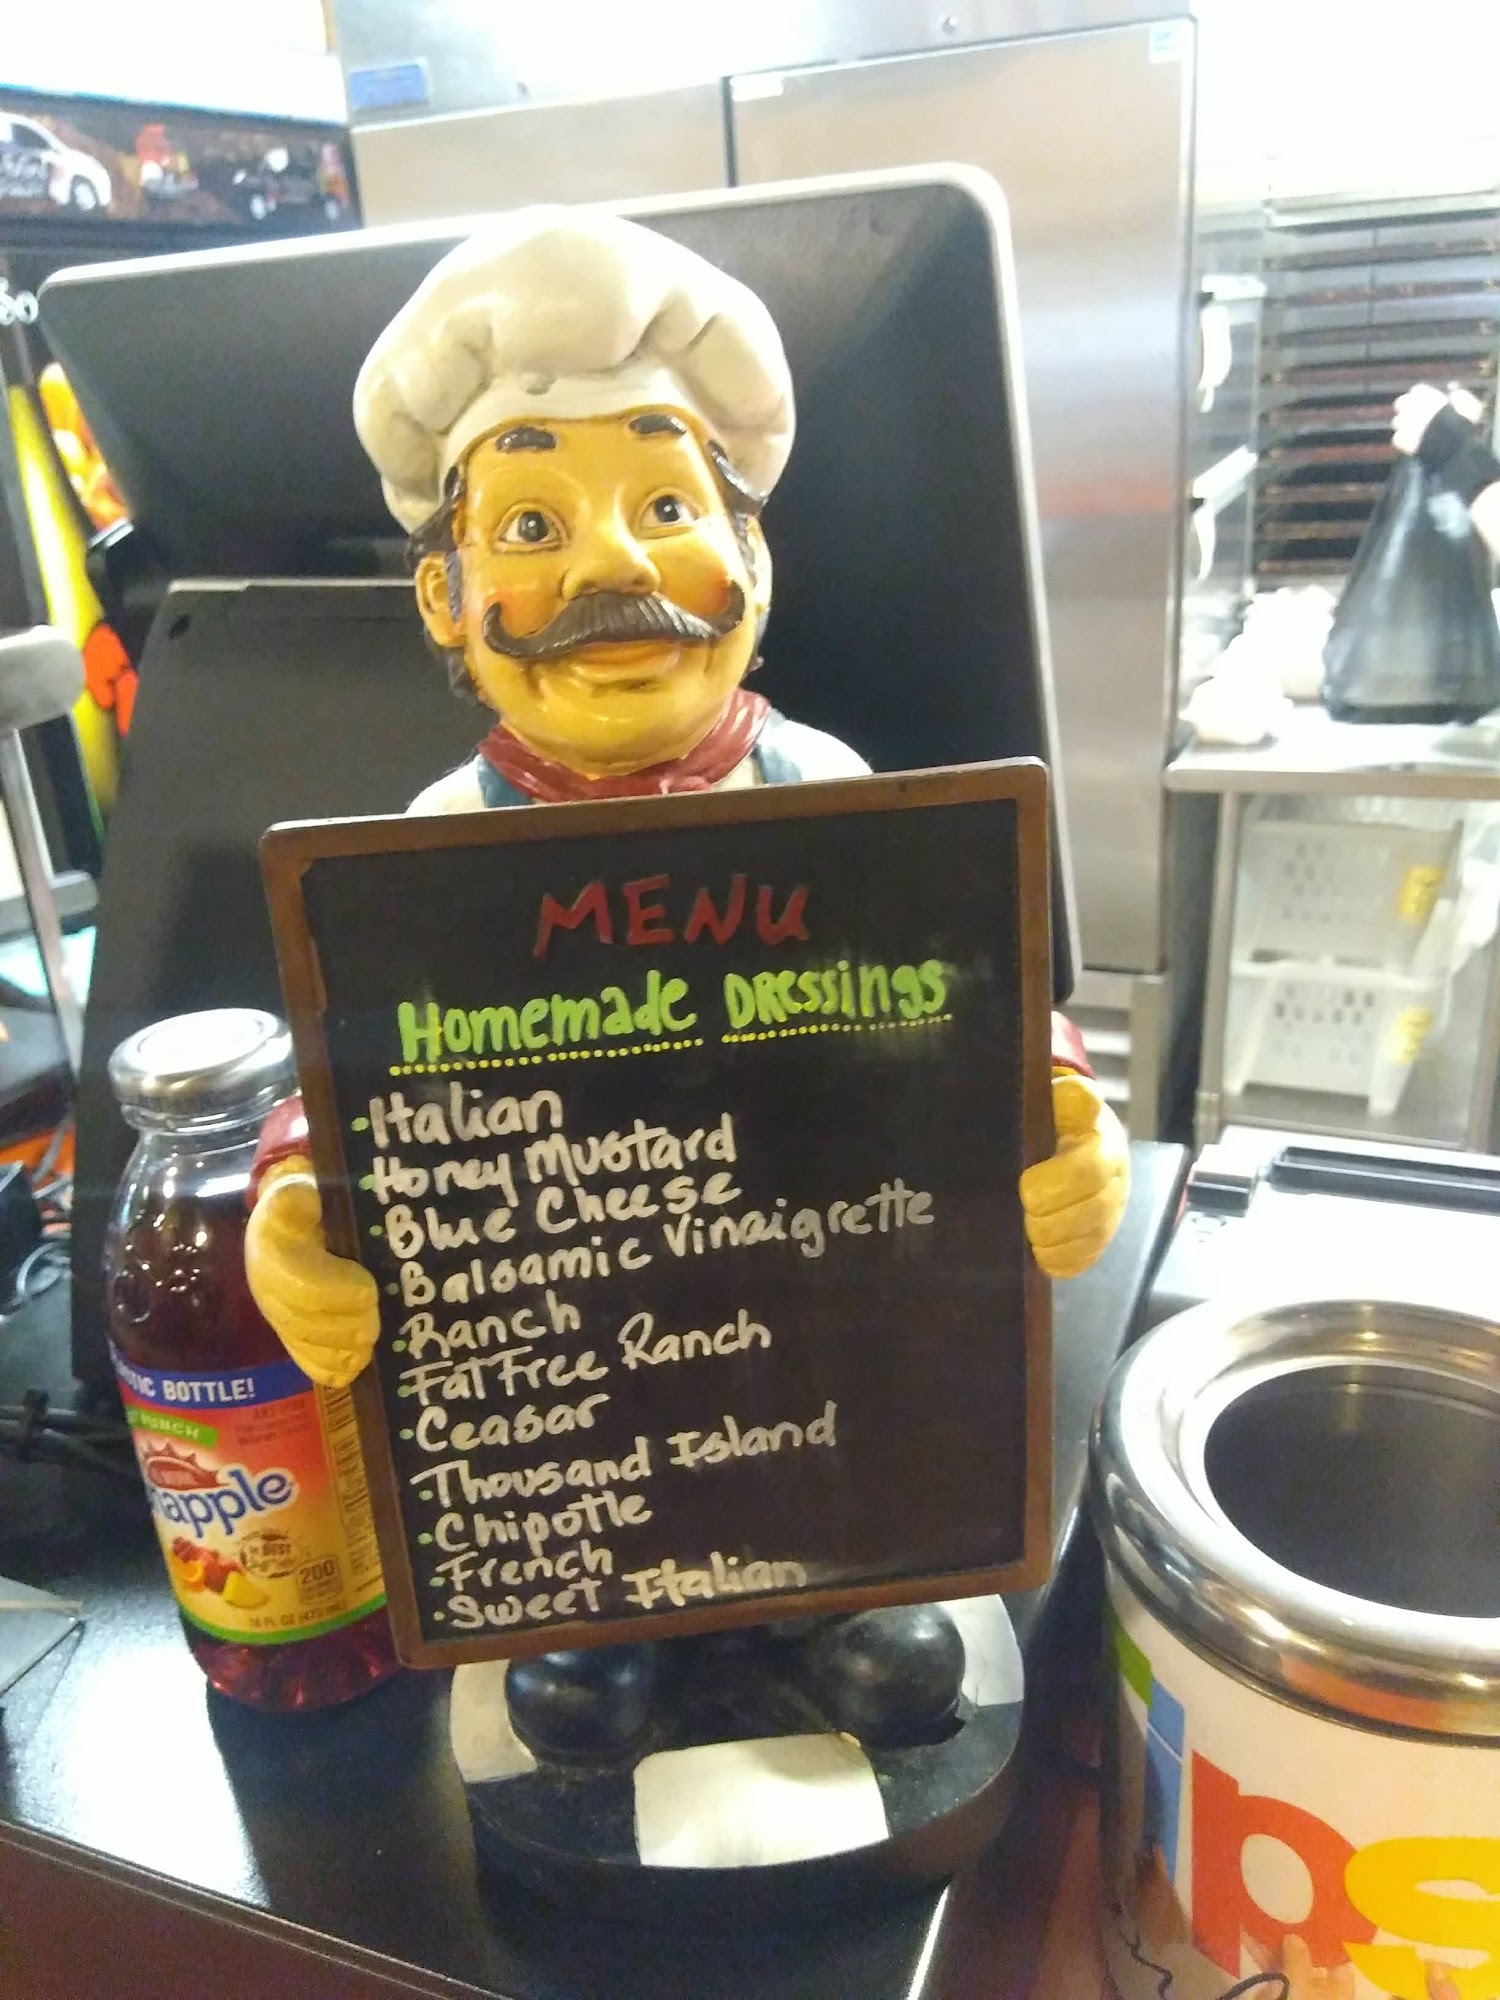 MENU
Homemade DRessings
Italian
Honey Mustard
Blue Cheese
Balsamic Vinaigrette
Ranch
Fat Free Ranch
Ceasar
Thousand Island
Chipotle
French
Sweet Italian
BOTTLE!
PUNCH
napple
BEST
200
16 FL OZ (473 mL)
ps